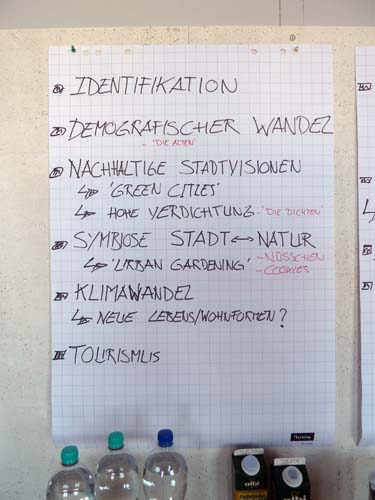 IDENTIFIKATION
DEMOGRAFISCHER WANDEL
- 'DIE ALTEN'
NACHHALTIGE STADTVISIONEN
↳ 'GREEN CITIES'
↳ HOHE VERDICHTUNG - 'DIE DICHTEN'
SYMBIOSE STADT ↔ NATUR
↳ 'URBAN GARDENING' - NÜSSCHEN
- COOKIES
KLIMAWANDEL
↳ NEUE LEBENS/WOHNFORMEN?
TOURISMUS
albi
albi